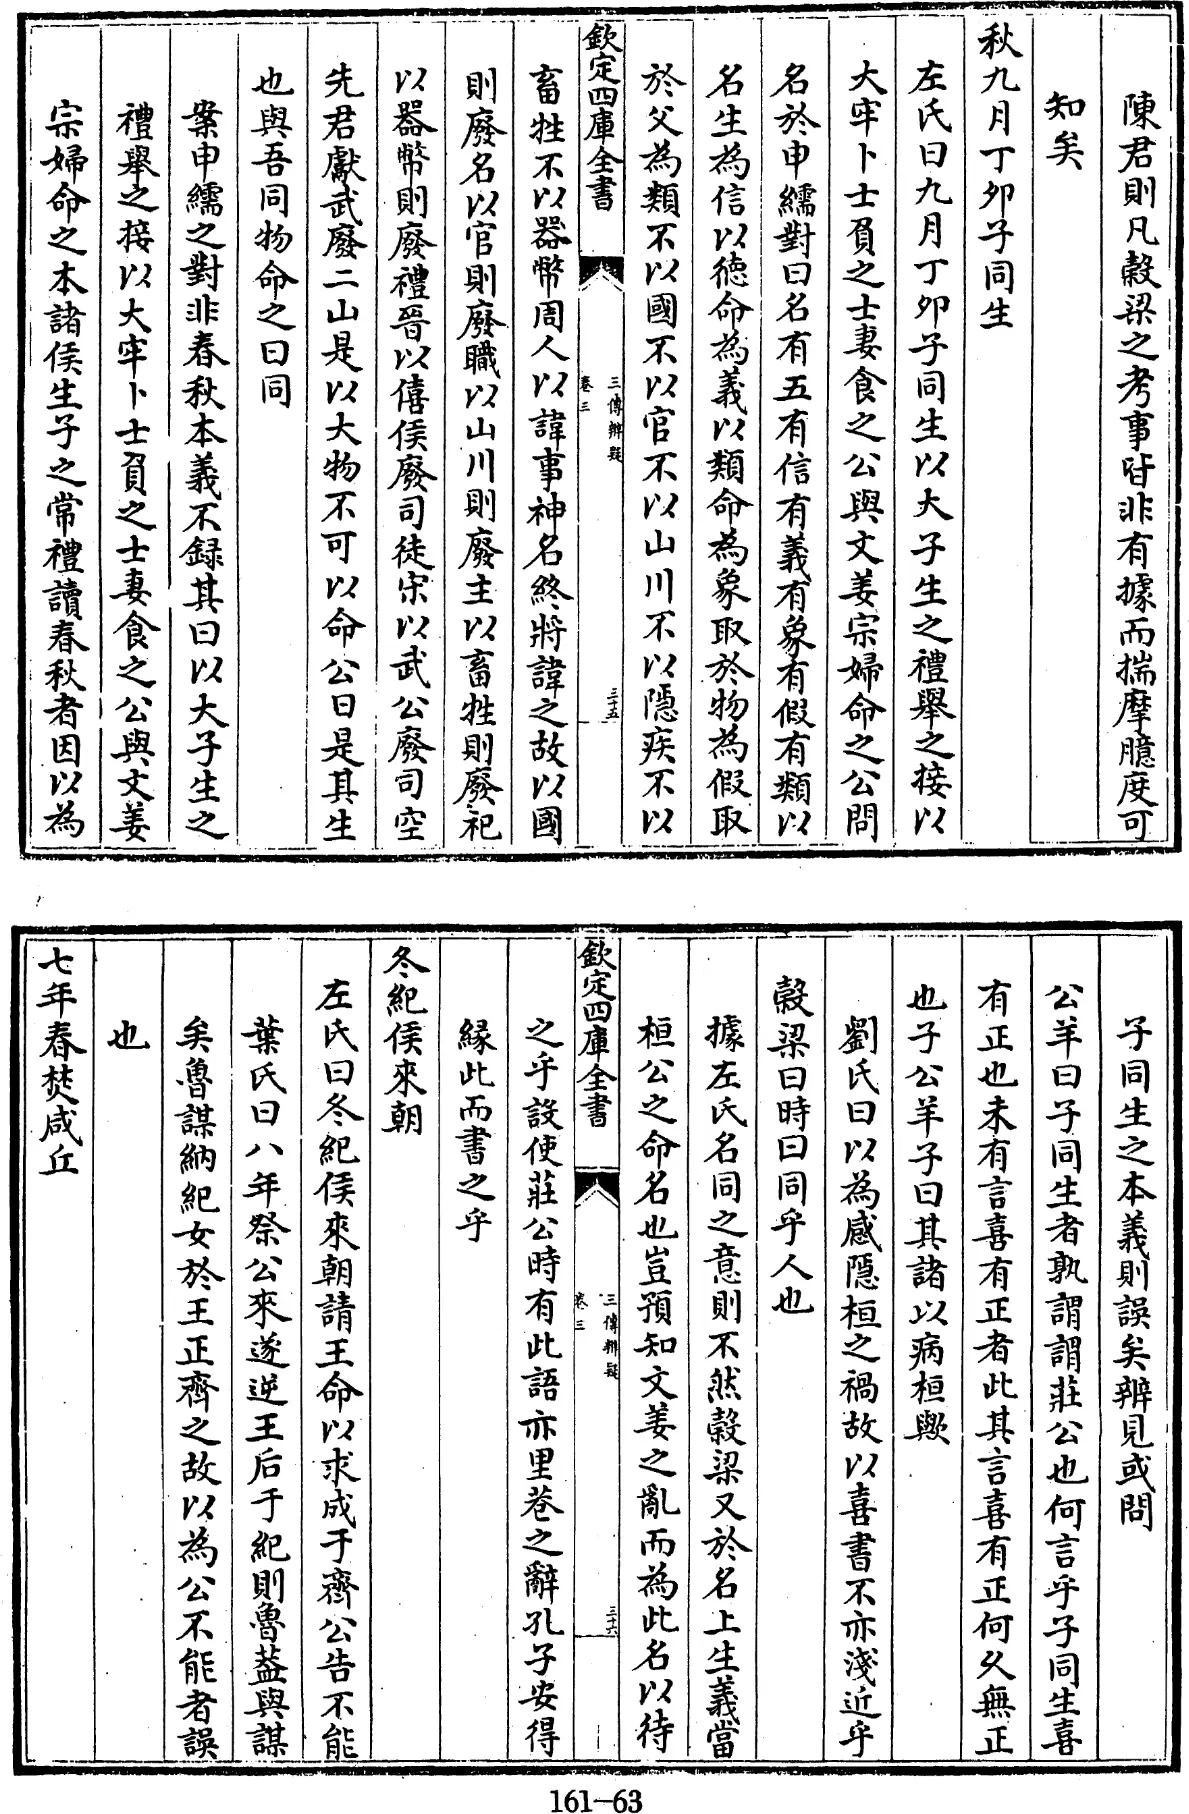 陳君則凡穀梁之考事皆非有據而揣摩臆度可
知矣
秋九月丁卯子同生
左氏曰九月丁卯子同生以大子生之禮舉之接以
大牢卜士負之士妻食之公與文姜宗婦命之公問
名於申繻對曰名有五有信有義有象有假有類以
名生為信以徳命為義以類命為象取於物為假取
於父為類不以國不以官不以山川不以隱疾不以
欽定四庫全書
三傳辨疑
卷三
三十五
畜牲不以器幣周人以諱事神名終將諱之故以國
則廢名以官則廢職以山川則廢主以畜牲則廢祀
以器幣則廢禮晉以僖侯廢司徒宋以武公廢司空
先君獻武廢二山是以大物不可以命公曰是其生
也與吾同物命之曰同
案申繻之對非春秋本義不録其曰以大子生之
禮舉之接以大牢卜士負之士妻食之公與文姜
宗婦命之本諸侯生子之常禮讀春秋者因以為
子同生之本義則誤矣辨見或問
公羊曰子同生者孰謂謂莊公也何言乎子同生喜
有正也未有言喜有正者此其言喜有正何久無正
也子公羊子曰其諸以病桓歟
劉氏曰以為感隱桓之禍故以喜書不亦淺近乎
穀梁曰時曰同乎人也
據左氏名同之意則不然穀梁又於名上生義當
桓公之命名也豈預知文姜之亂而為此名以待
欽定四庫全書
三傳辨疑
卷三
三十六
之乎設使莊公時有此語亦里巷之辭孔子安得
縁此而書之乎
冬紀侯來朝
左氏曰冬紀侯來朝請王命以求成于齊公告不能
葉氏曰八年祭公來遂逆王后于紀則魯葢與謀
矣魯謀納紀女於王正齊之故以為公不能者誤
也
七年春焚咸丘
161-63